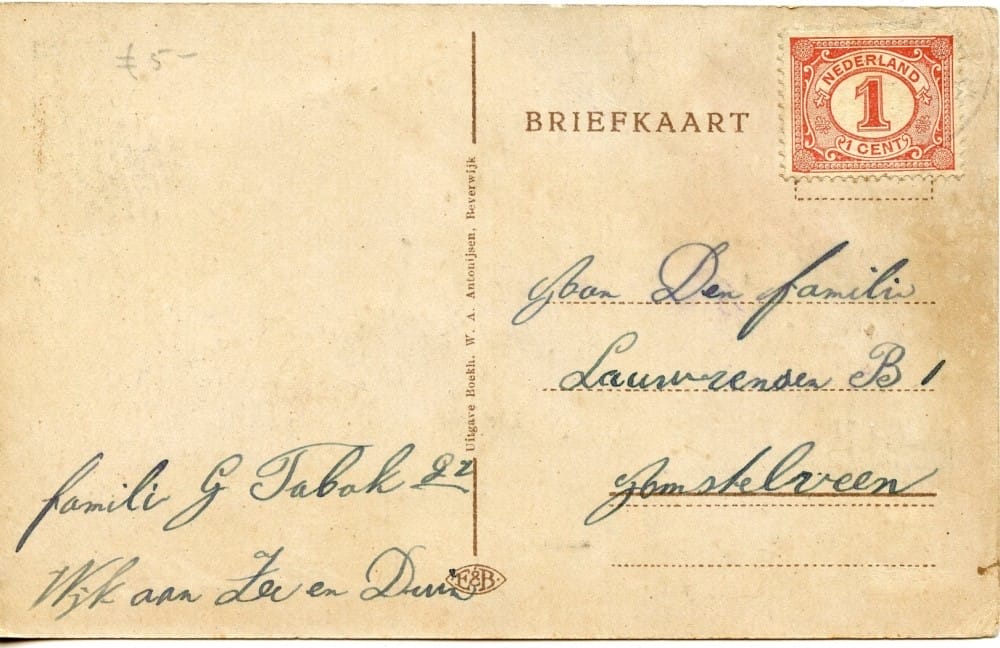 £ 5 -
BRIEFKAART
NEDERLAND
1
1 CENT
Uitgave Boekh. W. A. Antonijsen, Beverwijk
Aan Den famili
Lauwrensen B 1
Amstelveen
famili G Tabak
Wijk aan Zee en Duin
F&B